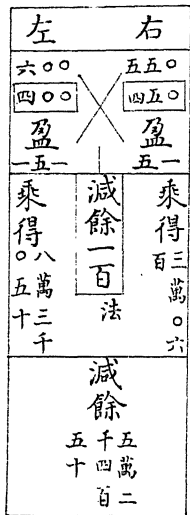 右
五五〇
四五〇
盈
五一
左
六〇〇
四〇〇
盈
一五一
乘得三萬〇六
百
減餘一百
法
乘得八萬三千
〇五十
減餘
五萬二
千四百
五十